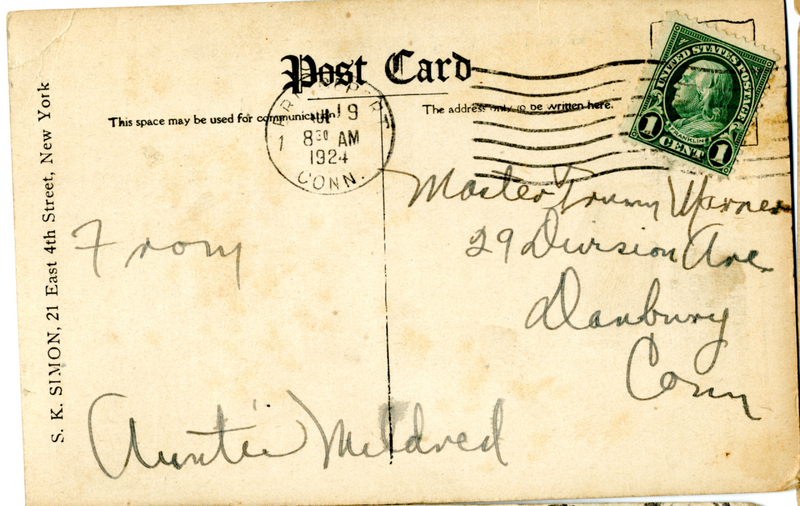 Post Card
This space may be used for communication.
The address only to be written here.
19
8 30 AM
1924
CONN.
1
UNITED STATES POSTAGE
FRANKLIN
1 CENT 1
From
Auntie Mildred
Master Warner
29 Division Ave.
Danbury
Conn
S. K. SIMON, 21 East 4th Street, New York